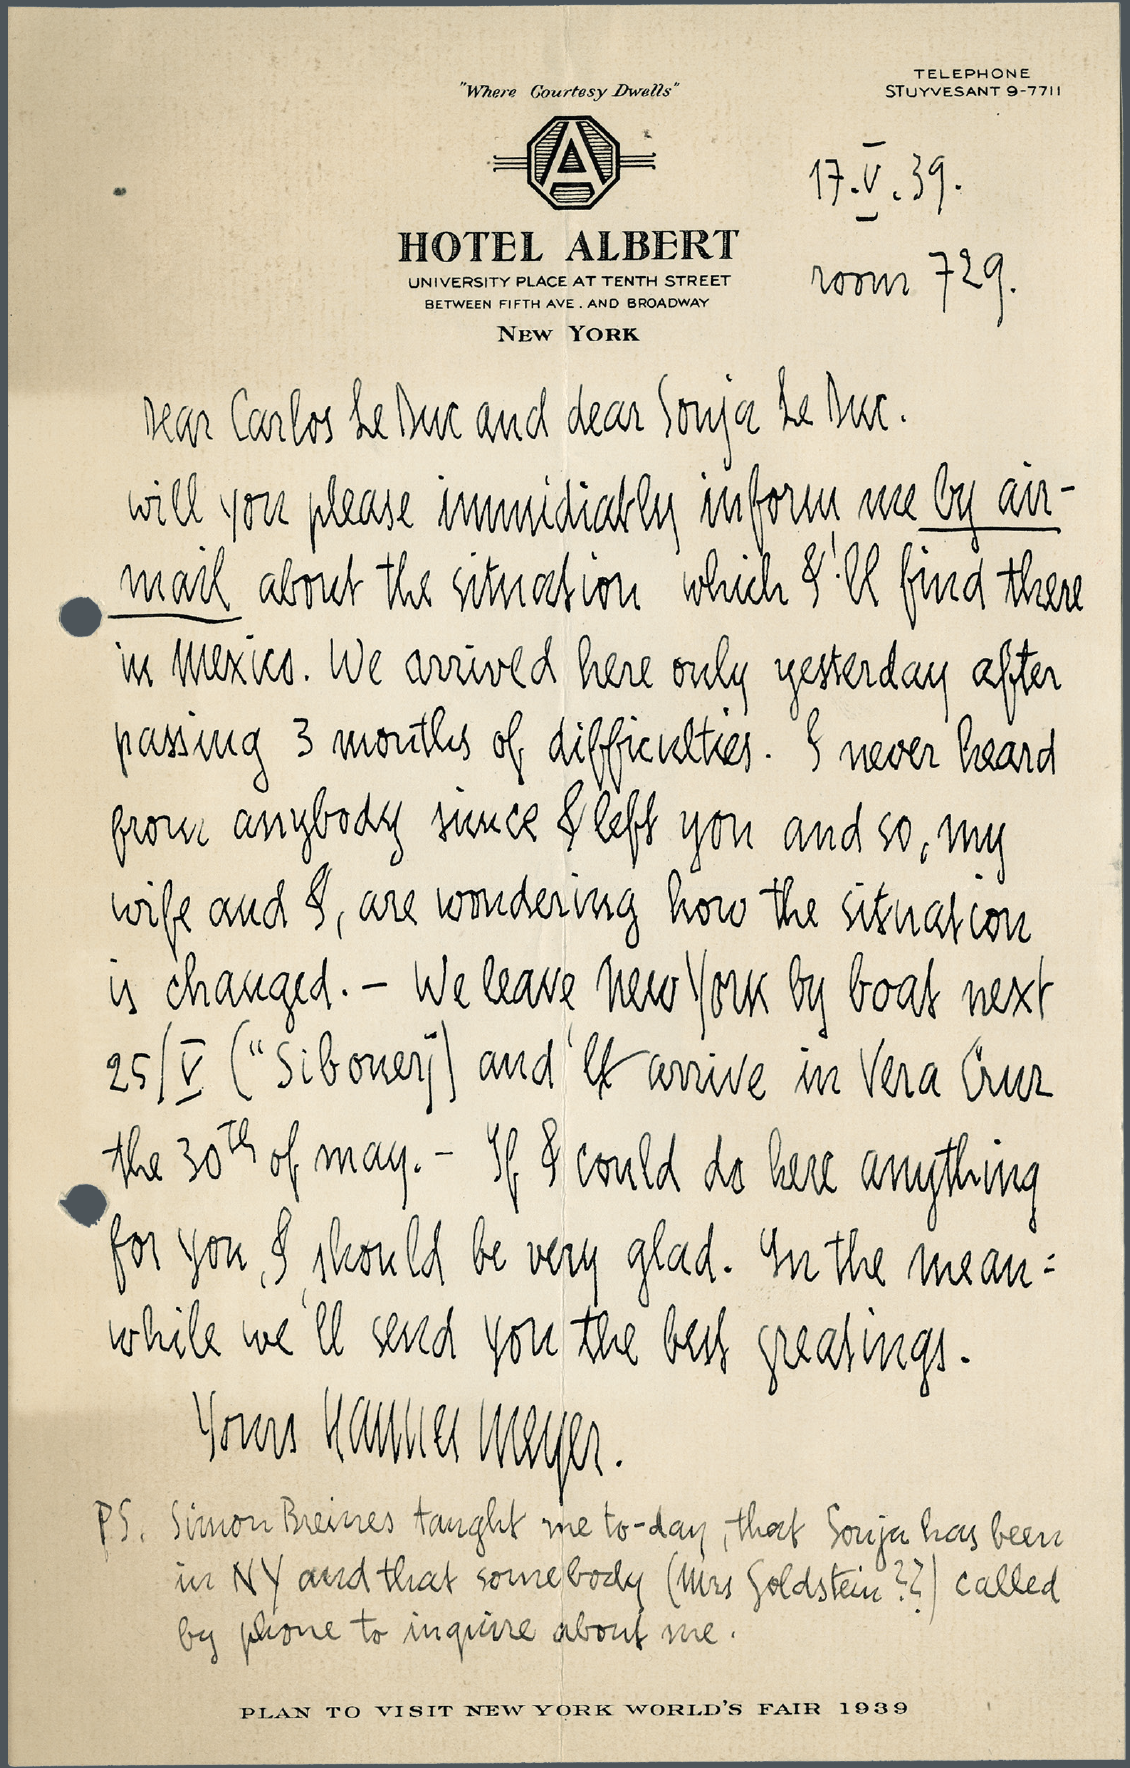 "Where Courtesy Dwells"
TELEPHONE
STUYVESANT 9-7711
A
HOTEL ALBERT
UNIVERSITY PLACE AT TENTH STREET
BETWEEN FIFTH AVE. AND BROADWAY
NEW YORK
17.V.39.
room 729.
Dear Carlos Le Duc and dear Sonja Le Duc.
will you please immidiatly inform me by air-
mail about the situation which I'll find there
in Mexico. We arrived here only yesterday after
passing 3 months of difficulties. I never heard
from anybody since I left you and so, my
wife and I, are wondering how the situation
is changed. – We leave New York by boat next
25/V ("Siboney") and 'll arrive in Vera Cruz
the 30th of may. – If I could do here anything
for you, I should be very glad. In the mean=
while we'll send you the best greatings.
Yours Hannes Meyer.
PS. Simon Breines taught me to-day, that Sonja has been
in NY and that somebody (Mrs Goldstein??) called
by phone to inquire about me.
PLAN TO VISIT NEW YORK WORLD'S FAIR 1939